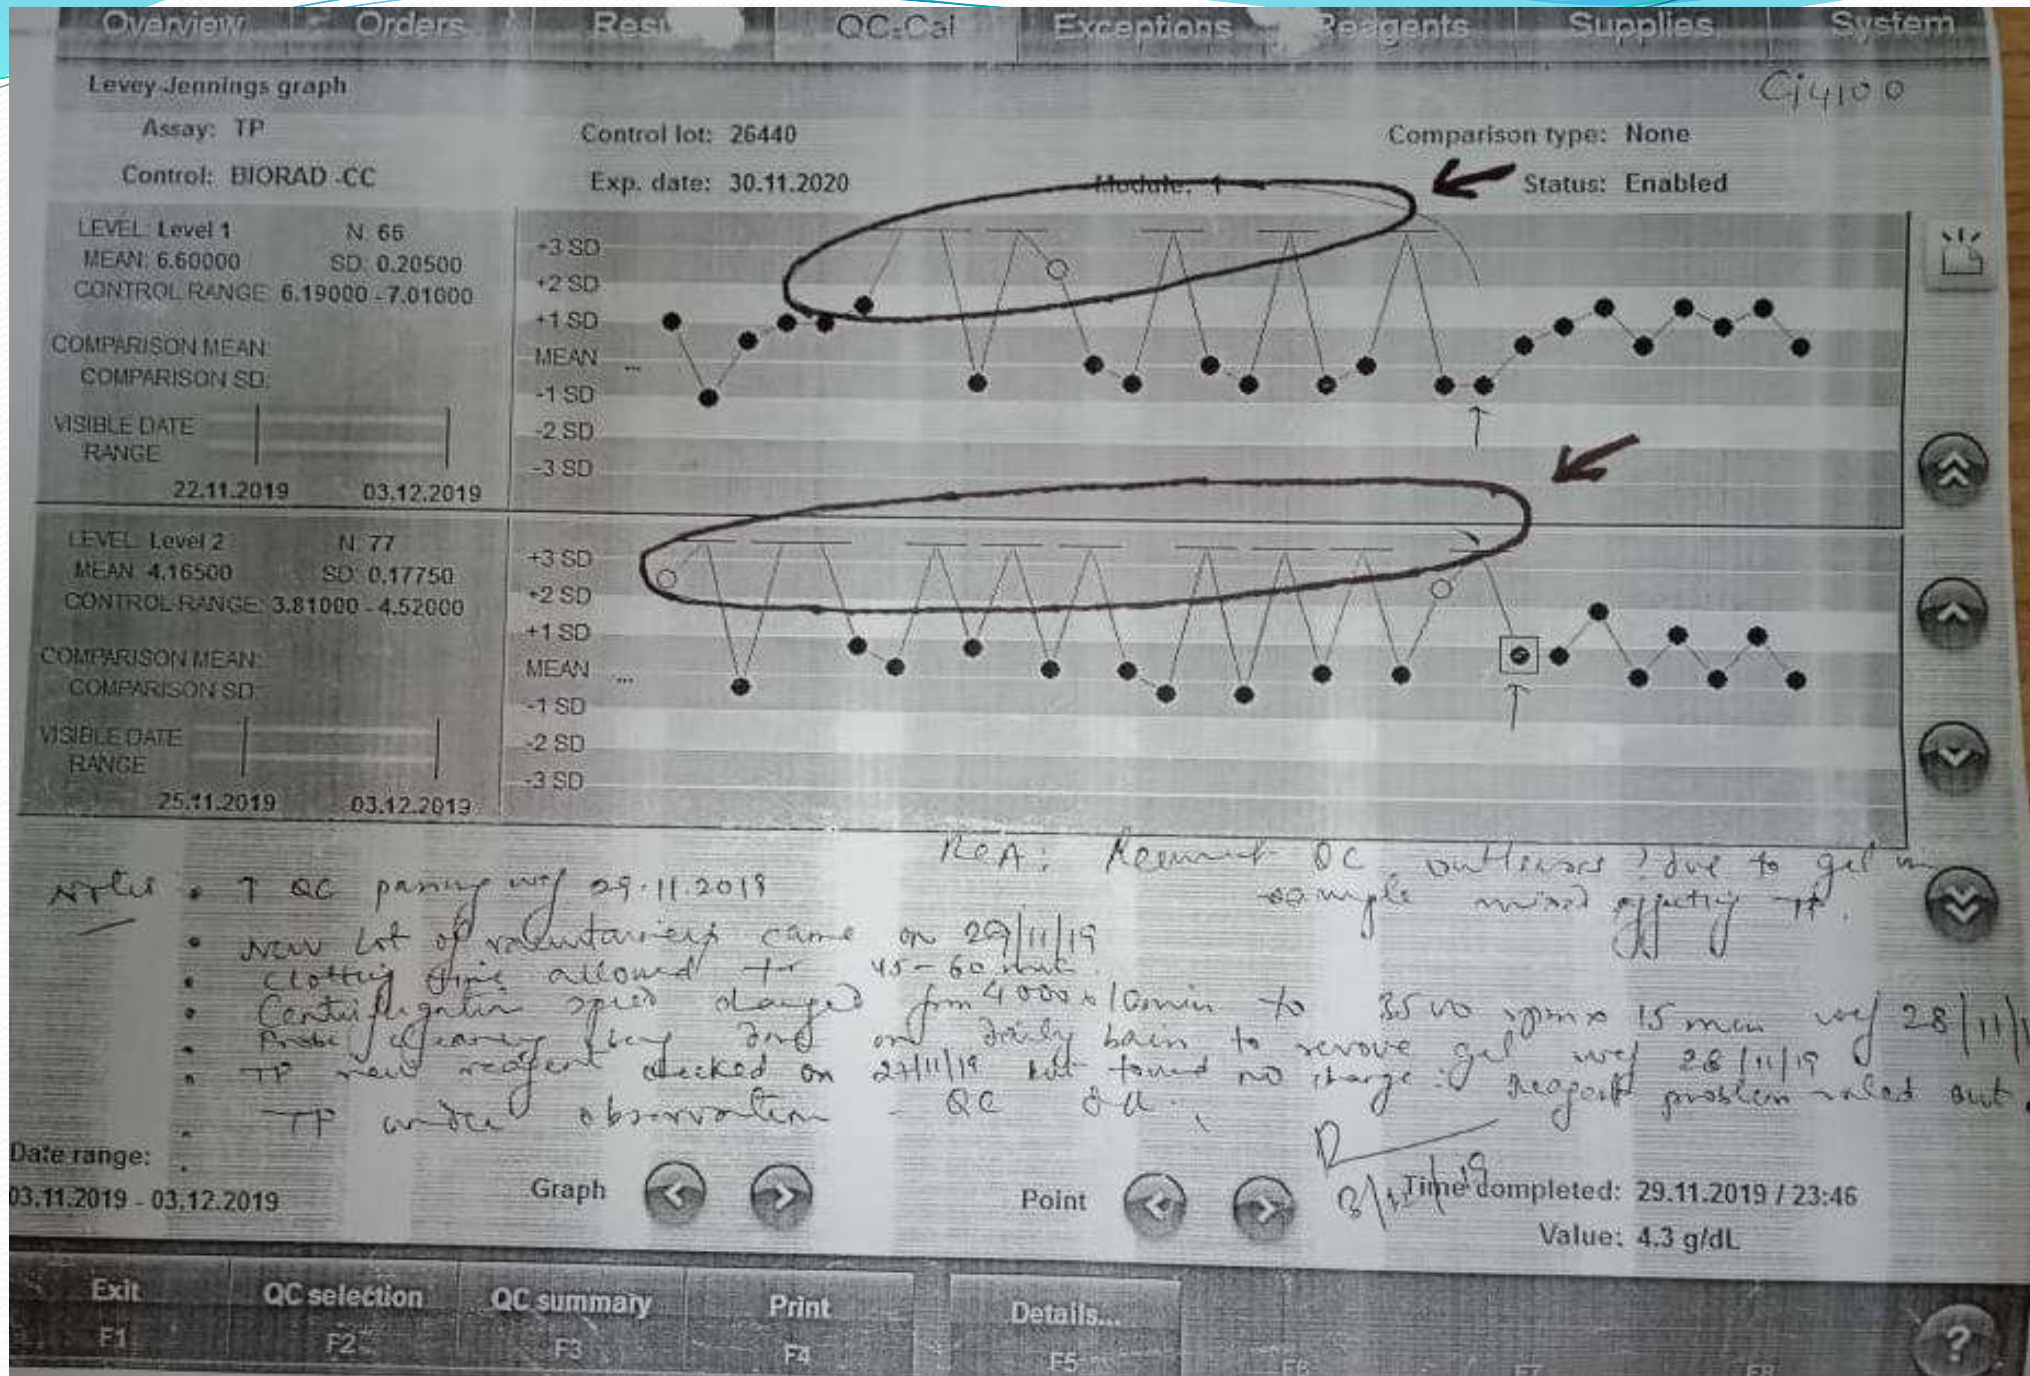 Overview Orders QC-Cal Exceptions Reagents Supplies System
Levey-Jennings graph
Ci4100
Assay: TP Control lot: 26440 Comparison type: None
Control: BIORAD -CC Exp. date: 30.11.2020 Module: 1 Status: Enabled
LEVEL: Level 1 N: 66
MEAN: 6.60000 SD: 0.20500
CONTROL RANGE: 6.19000 - 7.01000
COMPARISON MEAN:
COMPARISON SD:
VISIBLE DATE
RANGE
22.11.2019 03.12.2019
+3 SD
+2 SD
+1 SD
MEAN ...
-1 SD
-2 SD
-3 SD
LEVEL: Level 2 N: 77
MEAN: 4.16500 SD: 0.17750
CONTROL RANGE: 3.81000 - 4.52000
COMPARISON MEAN:
COMPARISON SD:
VISIBLE DATE
RANGE
25.11.2019 03.12.2019
+3 SD
+2 SD
+1 SD
MEAN ...
-1 SD
-2 SD
-3 SD
RCA: Recurrent QC outliers ? due to gel in
sample mixed affecting TP.
Notes • ↑ QC passing wef 29.11.2019
• New lot of vacutainers came on 29/11/19
• Clotting time allowed for 45-60 mnt.
• Centrifugation speed changed from 4000 x 10min to 3500 rpm x 15 min wef 28/11/1
• Probe cleaning being done on daily basis to remove gel wef 28/11/19
• TP new reagent checked on 27/11/19 but found no change ∴ reagent problem ruled out.
TP under observation - QC
Date range:
03.11.2019 - 03.12.2019
Graph Point
Time completed: 29.11.2019 / 23:46
Value: 4.3 g/dL
Exit QC selection QC summary Print Details...
F1 F2 F3 F4 F5 F6 F7 F8
?